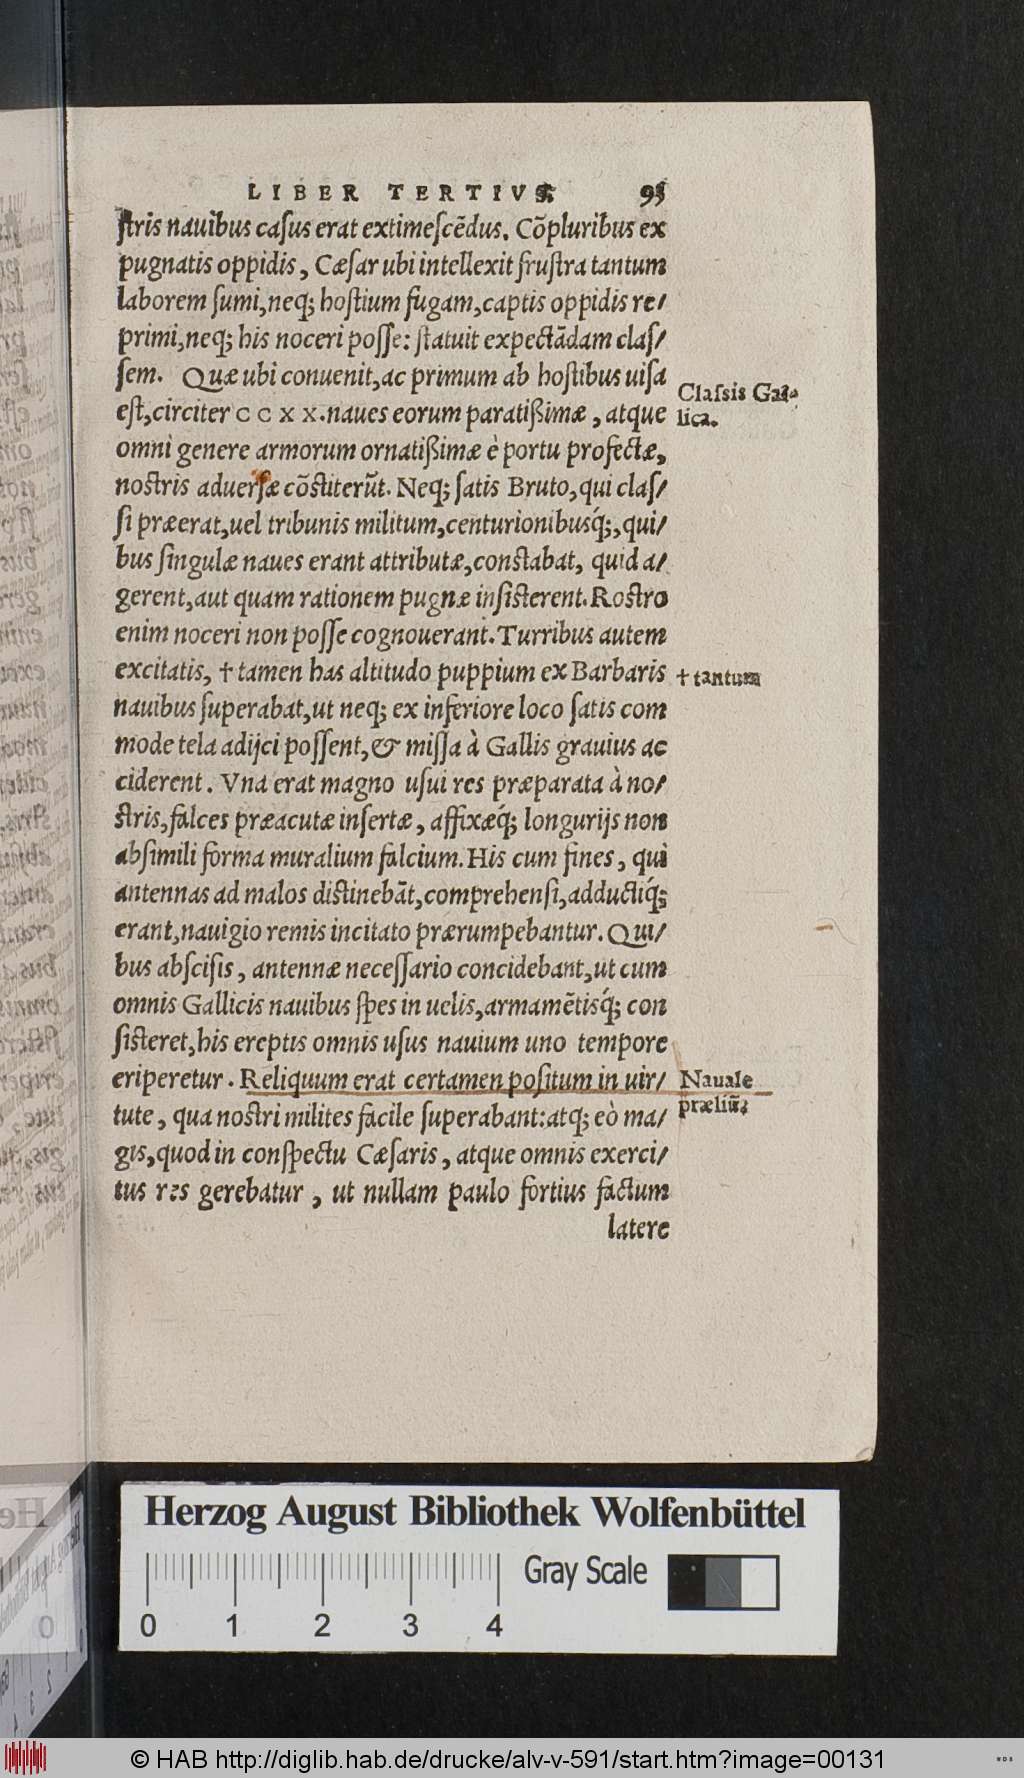 LIBER TERTIVS. 93
ſtris nauibus caſus erat extimeſcẽdus. Cõpluribus ex
pugnatis oppidis, Cæſar ubi intellexit fruſtra tantum
laborem ſumi, neq; hoſtium fugam, captis oppidis re/
primi, neq; his noceri poſſe: ſtatuit expectãdam claſ/
ſem. Quæ ubi conuenit, ac primum ab hoſtibus uiſa
eſt, circiter CCXX. naues eorum paratißimæ, atque
Claſsis Gal-
lica.
omni genere armorum ornatißimæ è portu profectæ,
noſtris aduerſæ cõſtiterũt. Neq; ſatis Bruto, qui claſ/
ſi præerat, uel tribunis militum, centurionibusq́;, qui/
bus ſingulæ naues erant attributæ, conſtabat, quid a/
gerent, aut quam rationem pugnæ inſiſterent. Roſtro
enim noceri non poſſe cognouerant. Turribus autem
excitatis, † tamen has altitudo puppium ex Barbaris
† tantum
nauibus ſuperabat, ut neq; ex inferiore loco ſatis com
mode tela adijci poſſent, & miſſa à Gallis grauius ac
ciderent. Vna erat magno uſui res præparata à no/
ſtris, falces præacutæ inſertæ, affixæq́; longurijs non
abſimili forma muralium falcium. His cum fines, qui
antennas ad malos diſtinebãt, comprehenſi, adductiq́;
erant, nauigio remis incitato prærumpebantur. Qui/
bus abſciſis, antennæ neceſſario concidebant, ut cum
omnis Gallicis nauibus ſpes in uelis, armamẽtisq́; con
ſiſteret, his ereptis omnis uſus nauium uno tempore
eriperetur. Reliquum erat certamen poſitum in uir/
Nauale
præliũ.
tute, qua noſtri milites facile ſuperabant: atq; eò ma/
gis, quod in conſpectu Cæſaris, atque omnis exerci/
tus res gerebatur, ut nullam paulo fortius factum
latere
Herzog August Bibliothek Wolfenbüttel
Gray Scale
0 1 2 3 4
© HAB http://diglib.hab.de/drucke/alv-v-591/start.htm?image=00131